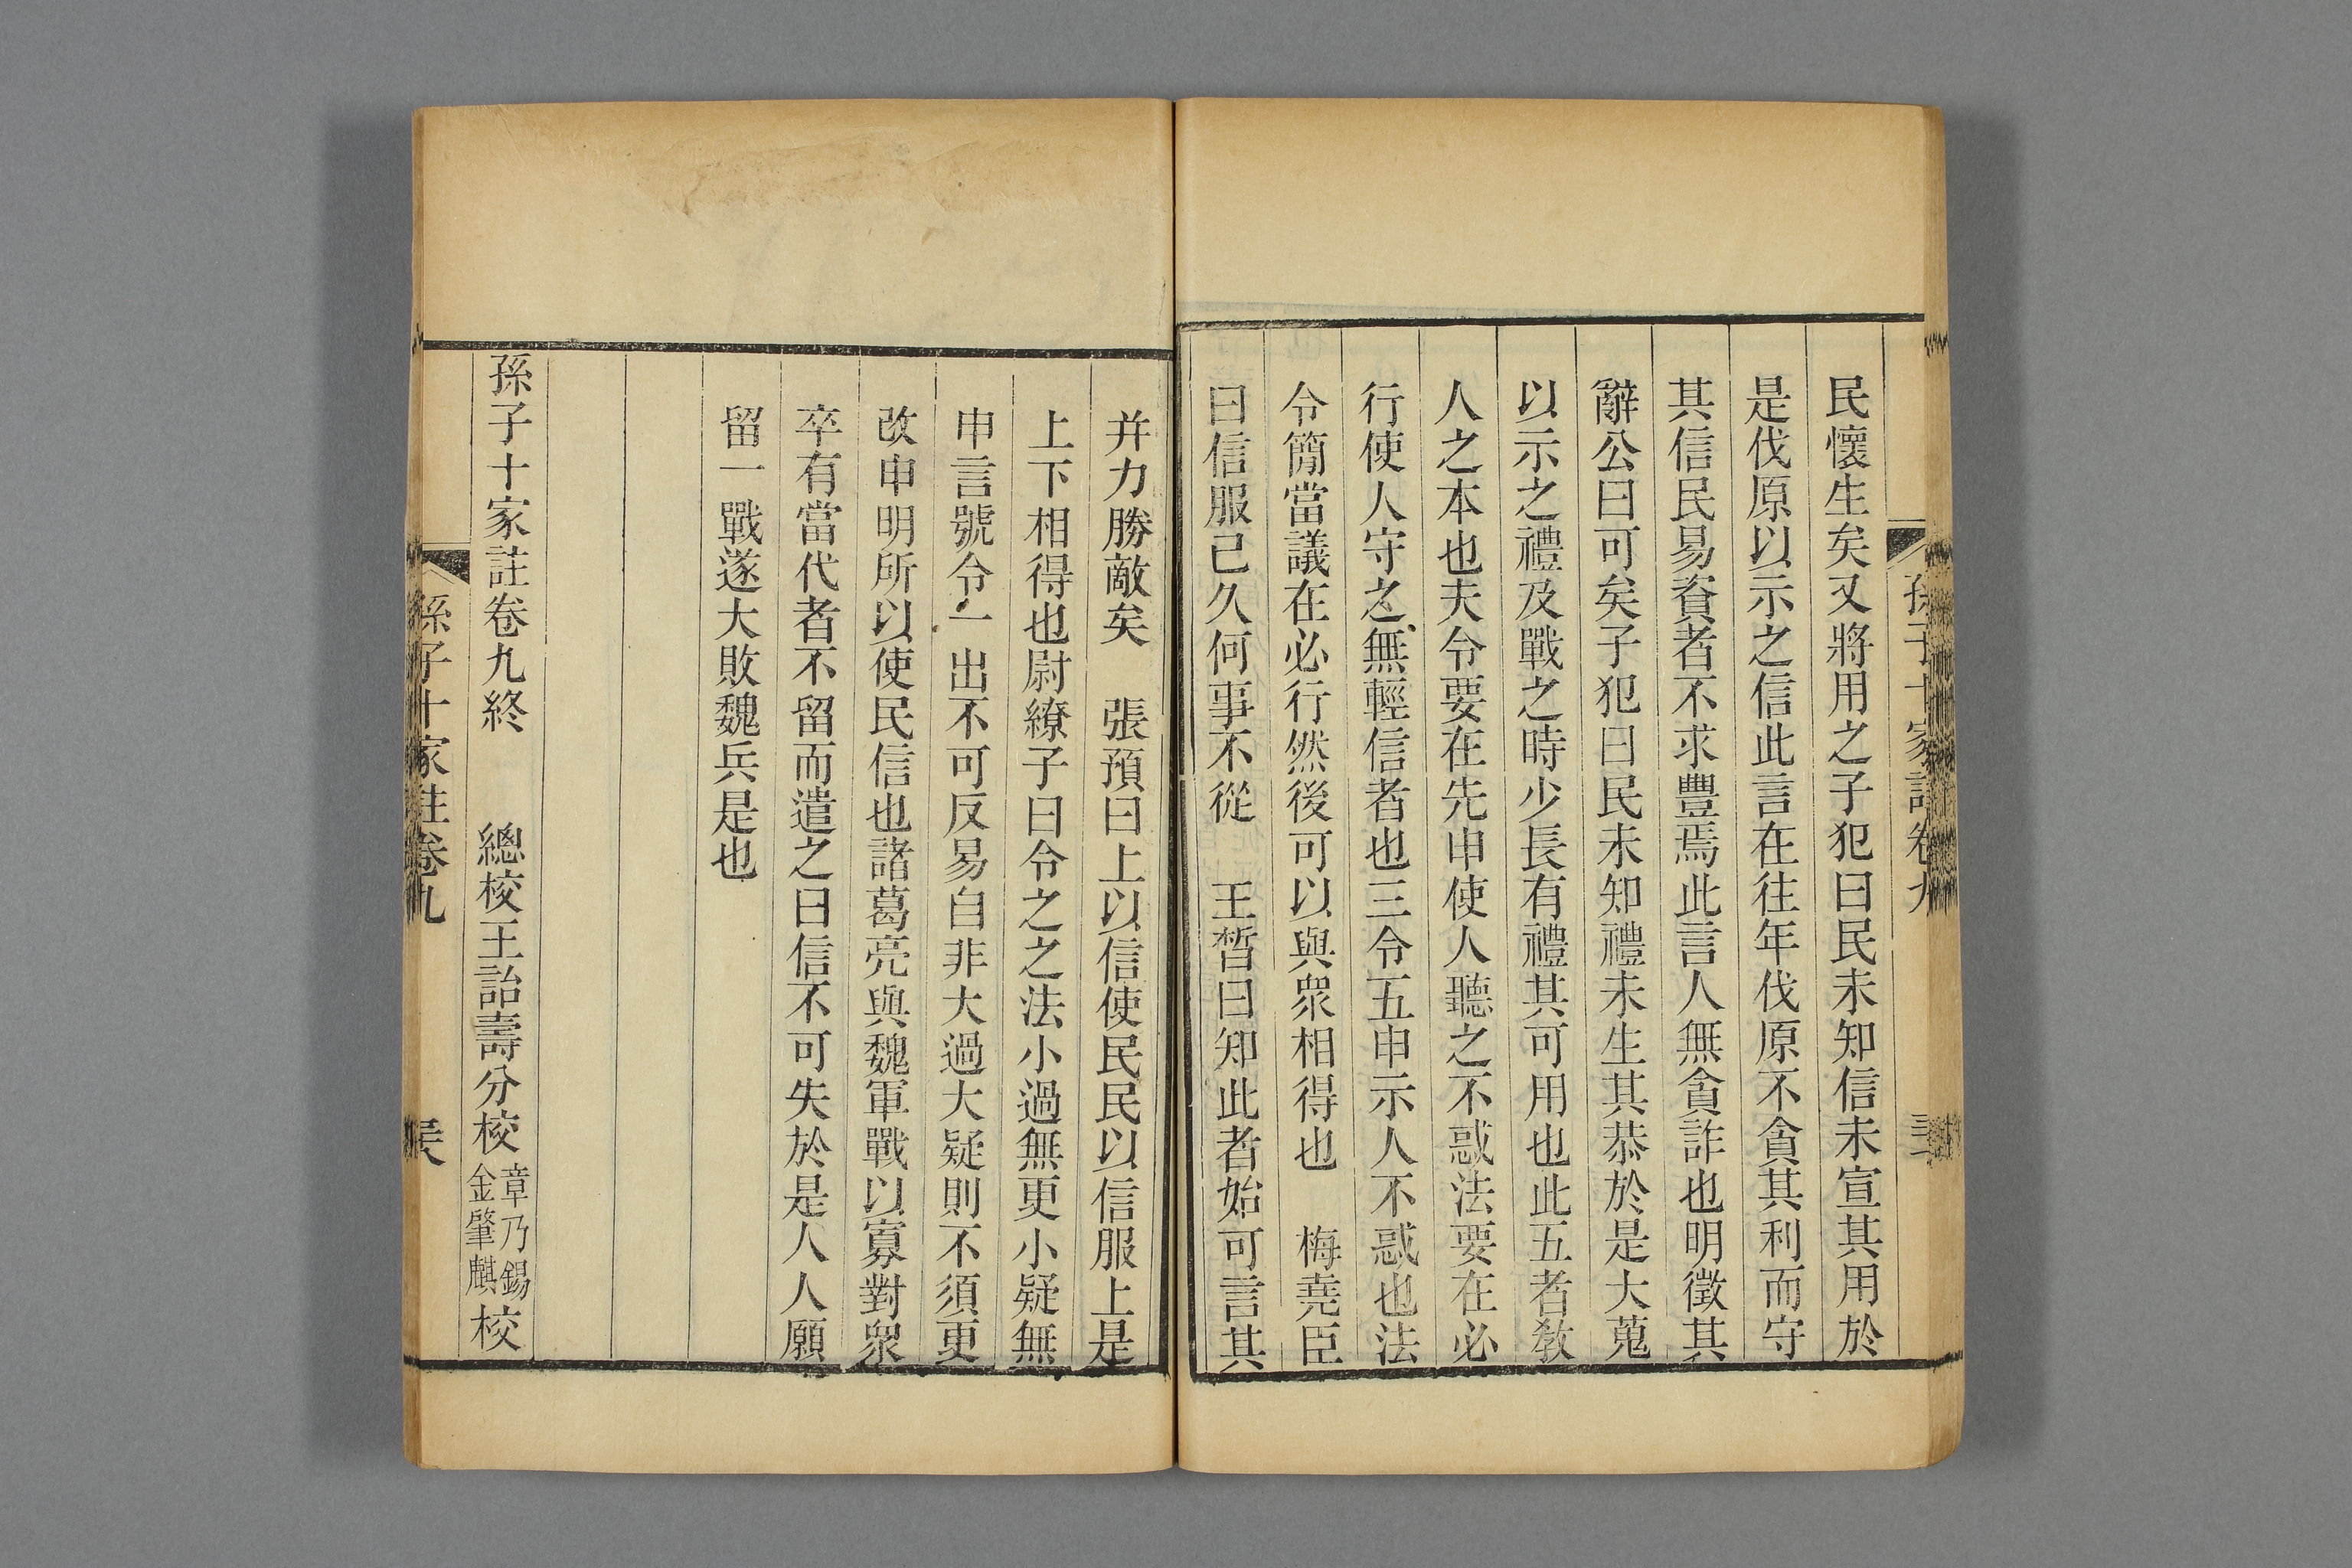 民懷生矣又將用之子犯曰民未知信未宣其用於
是伐原以示之信此言在往年伐原不貪其利而守
其信民易資者不求豐焉此言人無貪詐也明徵其
辭公曰可矣子犯曰民未知禮未生其恭於是大蒐
以示之禮及戰之時少長有禮其可用也此五者教
人之本也夫令要在先申使人聽之不惑法要在必
行使人守之無輕信者也三令五申示人不惑也法
令簡當議在必行然後可以與衆相得也　梅堯臣
曰信服已久何事不從　王晳曰知此者始可言其
并力勝敵矣　張預曰上以信使民民以信服上是
上下相得也尉繚子曰令之之法小過無更小疑無
申言號令一出不可反易自非大過大疑則不須更
改申明所以使民信也諸葛亮與魏軍戰以寡對衆
卒有當代者不留而遣之曰信不可失於是人人願
留一戰遂大敗魏兵是也
孫子十家註卷九終　總校王詒壽分校章乃錫金肇麒校
孫子十家註卷九